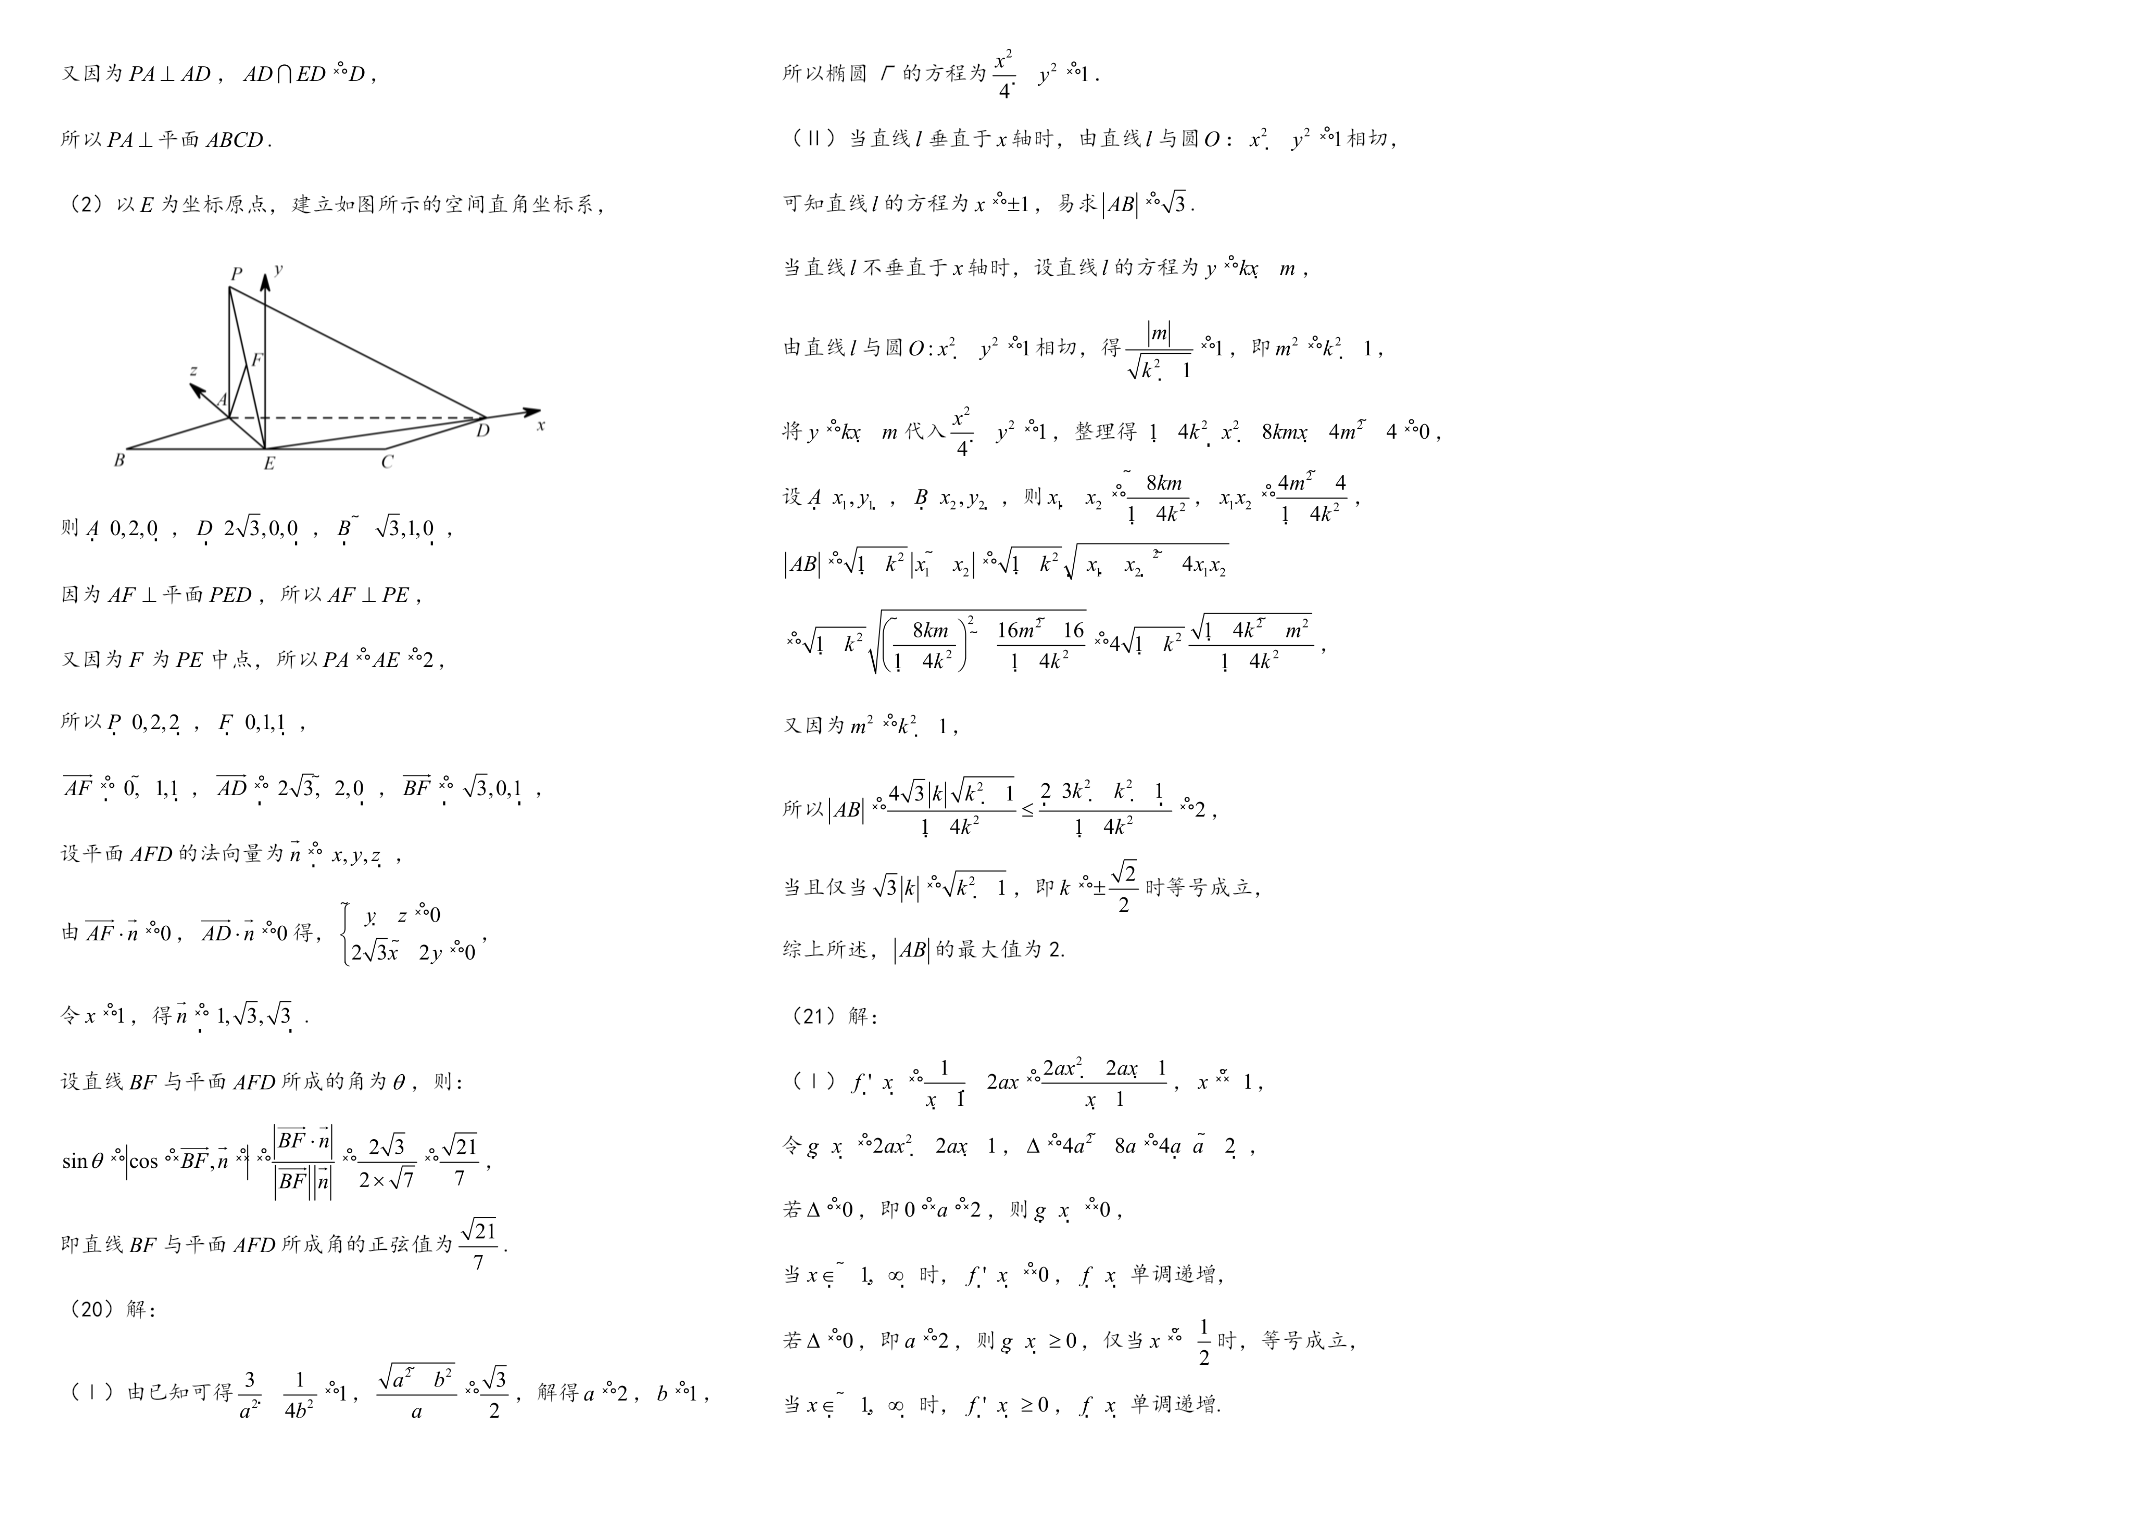 又因为 PA⊥AD，AD∩ED D，
所以 PA⊥平面 ABCD.
（2）以 E 为坐标原点，建立如图所示的空间直角坐标系，
P y
F
z
A
D x
B E C
则 A 0,2,0 ，D 2√3,0,0 ，B √3,1,0 ，
因为 AF⊥平面 PED，所以 AF⊥PE，
又因为 F 为 PE 中点，所以 PA AE 2，
所以 P 0,2,2 ，F 0,1,1 ，
AF 0, 1,1 ，AD 2√3, 2,0 ，BF √3,0,1 ，
设平面 AFD 的法向量为 n x,y,z ，
由 AF·n 0，AD·n 0 得，{ y z 0
2√3x 2y 0 ，
令 x 1，得 n 1,√3,√3 .
设直线 BF 与平面 AFD 所成的角为 θ，则：
sinθ |cos BF,n | |BF·n|/|BF||n| 2√3/2×√7 √21/7，
即直线 BF 与平面 AFD 所成角的正弦值为 √21/7.
（20）解：
（Ⅰ）由已知可得 3/a² 1/4b² 1，√a² b²/a √3/2，解得 a 2，b 1，
所以椭圆 Γ 的方程为 x²/4 y² 1.
（Ⅱ）当直线 l 垂直于 x 轴时，由直线 l 与圆 O：x² y² 1 相切，
可知直线 l 的方程为 x ±1，易求 |AB| √3.
当直线 l 不垂直于 x 轴时，设直线 l 的方程为 y kx m，
由直线 l 与圆 O:x² y² 1 相切，得 |m|/√k² 1 1，即 m² k² 1，
将 y kx m 代入 x²/4 y² 1，整理得 1 4k² x² 8kmx 4m² 4 0，
设 A x₁,y₁ ，B x₂,y₂ ，则 x₁ x₂ 8km/1 4k²，x₁x₂ 4m² 4/1 4k²，
|AB| √1 k² |x₁ x₂| √1 k² √ x₁ x₂ ² 4x₁x₂
√1 k² √( 8km/1 4k²)² 16m² 16/1 4k² 4√1 k² √1 4k² m²/1 4k²，
又因为 m² k² 1，
所以 |AB| 4√3|k|√k² 1/1 4k² ≤ 2 3k² k² 1/1 4k² 2，
当且仅当 √3|k| √k² 1，即 k ±√2/2 时等号成立，
综上所述，|AB| 的最大值为 2.
（21）解：
（Ⅰ）f' x 1/x 1 2ax 2ax² 2ax 1/x 1，x 1，
令 g x 2ax² 2ax 1，Δ 4a² 8a 4a a 2 ，
若 Δ 0，即 0 a 2，则 g x 0，
当 x∈ 1, ∞ 时，f' x 0，f x 单调递增，
若 Δ 0，即 a 2，则 g x ≥0，仅当 x 1/2 时，等号成立，
当 x∈ 1, ∞ 时，f' x ≥0，f x 单调递增.